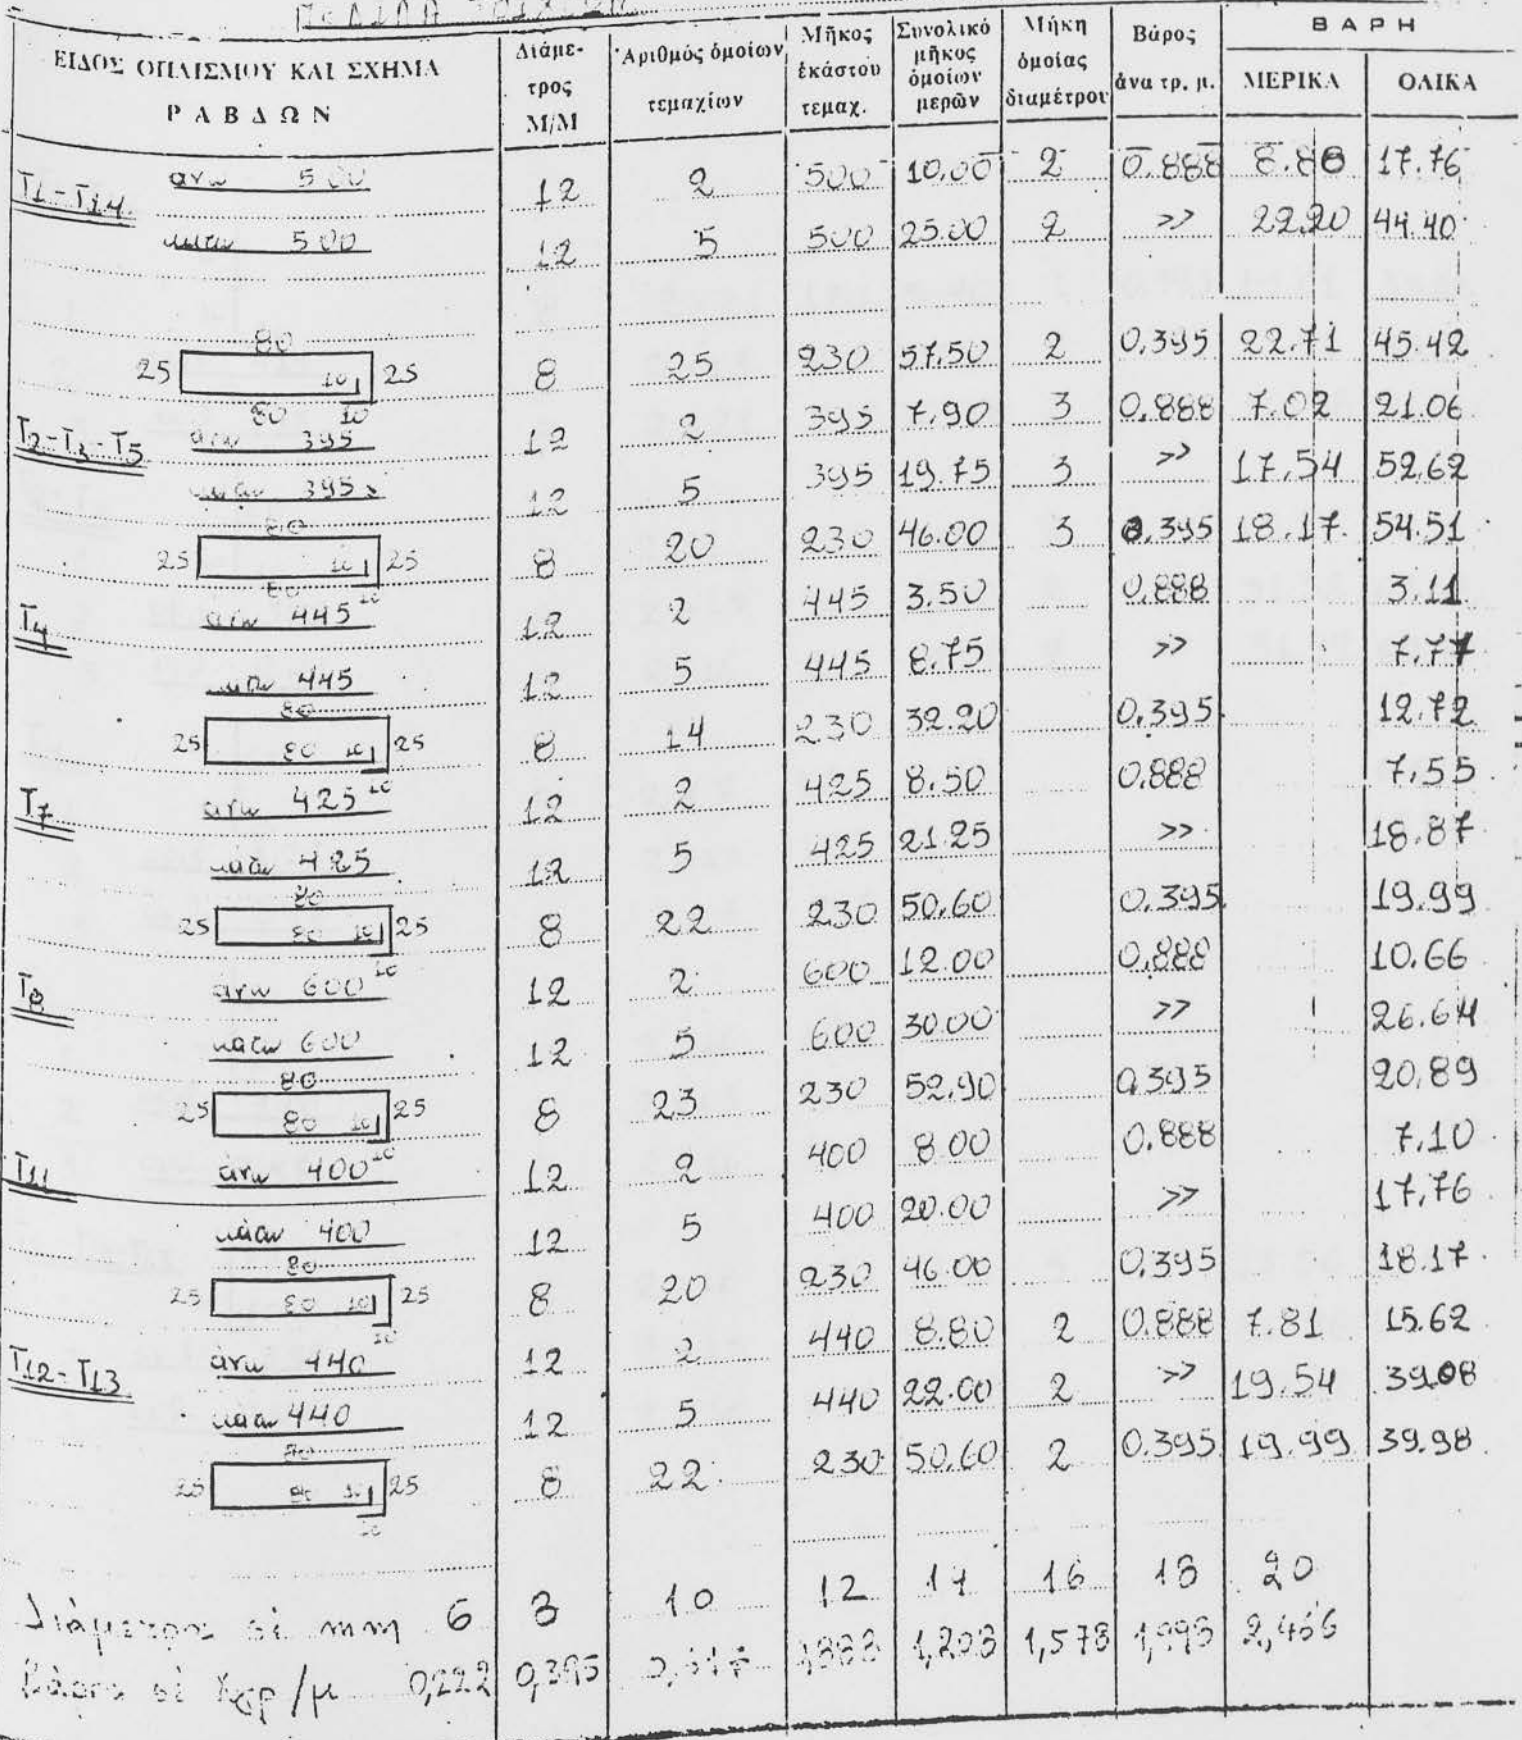 ΕΙΔΟΣ ΟΠΛΙΣΜΟΥ ΚΑΙ ΣΧΗΜΑ ΡΑΒΔΩΝ Διάμε-τρος Μ/Μ Ἀριθμός ὁμοίων τεμαχίων Μῆκος ἑκάστου τεμαχ. Συνολικό μῆκος ὁμοίων μερῶν Μήκη ὁμοίας διαμέτρου Βάρος ἀνα τρ. μ. ΒΑΡΗ ΜΕΡΙΚΑ ΟΛΙΚΑ
Τ1-Τ14 ανω 500 12 2 500 10.00 2 0.888 8.88 17.76
κατω 500 12 5 500 25.00 2 >> 22.20 44.40
80
25 10 25 8 25 230 57.50 2 0.395 22.71 45.42
80 10
Τ2-Τ3-Τ5 ανω 395 12 2 395 7.90 3 0.888 7.02 21.06
κατω 395 12 5 395 19.75 3 >> 17.54 52.62
80
25 10 25 8 20 230 46.00 3 0.395 18.17 54.51
80 10
Τ4 ανω 445 12 2 445 3.50 0.888 3.11
κατω 445 12 5 445 8.75 >> 7.77
80
25 80 10 25 8 14 230 32.20 0.395 12.72
10
Τ7 ανω 425 12 2 425 8.50 0.888 7.55
κατω 425 12 5 425 21.25 >> 18.87
80
25 80 10 25 8 22 230 50.60 0.395 19.99
10
Τ8 ανω 600 12 2 600 12.00 0.888 10.66
κατω 600 12 5 600 30.00 >> 26.64
80
25 80 10 25 8 23 230 52.90 0.395 20.89
10
Τ11 ανω 400 12 2 400 8.00 0.888 7.10
κατω 400 12 5 400 20.00 >> 17.76
80
25 80 10 25 8 20 230 46.00 0.395 18.17
10
Τ12-Τ13 ανω 440 12 2 440 8.80 2 0.888 7.81 15.62
κατω 440 12 5 440 22.00 2 >> 19.54 39.08
80
25 80 10 25 8 22 230 50.60 2 0.395 19.99 39.98
10
Διάμετρος σέ mm 6 8 10 12 14 16 18 20
Βάρος σέ Χγρ/μ 0,222 0,395 0,617 1,208 1,578 2,466